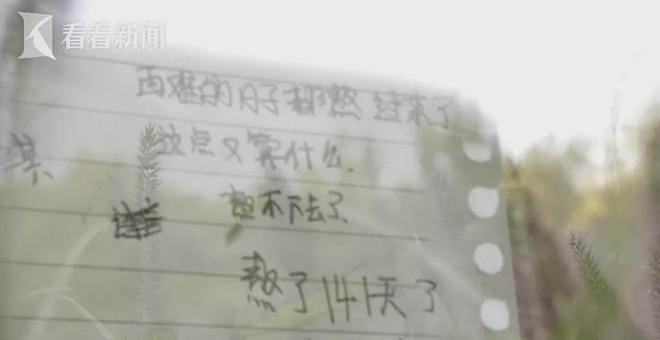 看看新闻
再难的日子都熬过来了
这点又算什么.
熬不下去了
熬了141天了